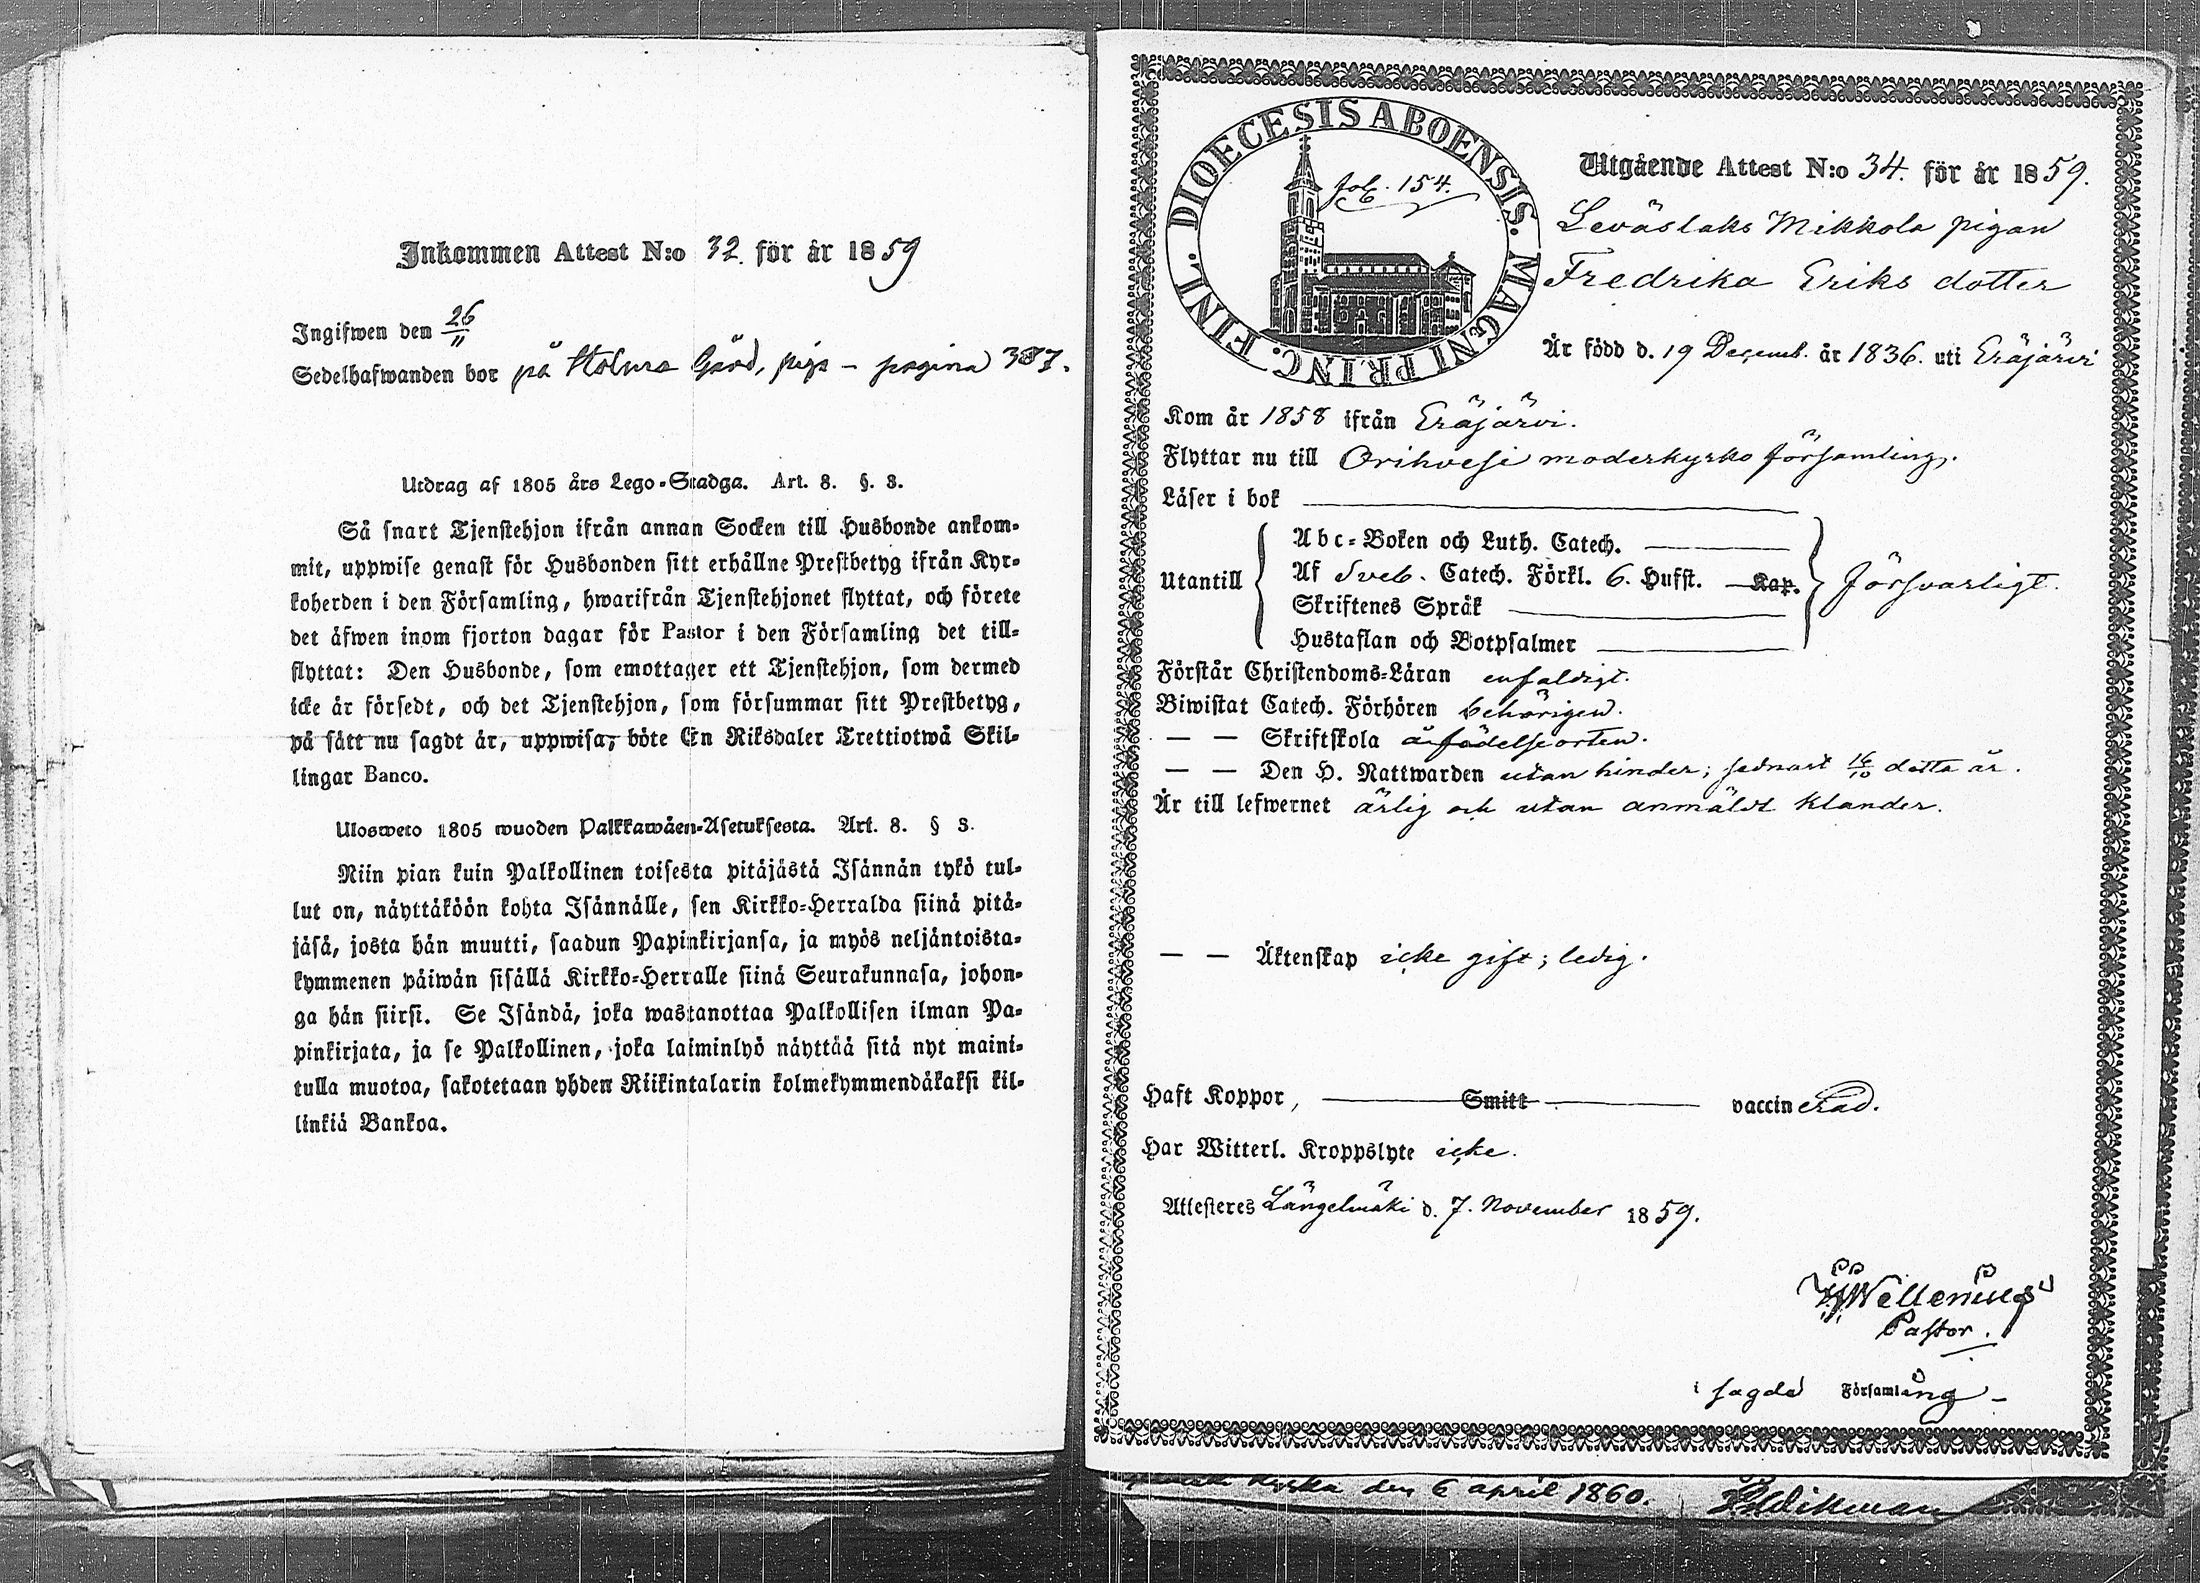 Inkommen Attest N:o 32. för år 1859
Ingifwen den 26/11
Sedelhafwanden bor på Gård, piga – pagina 387.
Utdrag af 1805 års Lego-Stadga. Art. 8. §. 3.
Så snart Tjenstehjon ifrån annan Socken till Husbonde ankom-
mit, uppwise genast för Husbonden sitt erhållne Prestbetyg ifrån Kyr-
koherden i den Församling, hwarifrån Tjenstehjonet flyttat, och förete
det äfwen inom fjorton dagar för Pastor i den Församling det till-
flyttat: Den Husbonde, som emottager ett Tjenstehjon, som dermed
icke är försedt, och det Tjenstehjon, som försummar sitt Prestbetyg,
på sätt nu sagdt är, uppwisa, böte En Riksdaler Trettiotwå Skil-
lingar Banco.
Ulosweto 1805 wuoden Palkkawäen-Asetuksesta. Art. 8. § 3.
Niin pian kuin Palkollinen toisesta pitäjästä Isännän tykö tul-
lut on, näyttäköön kohta Isännälle, sen Kirkko-Herralda siinä pitä-
jäsä, josta hän muutti, saadun Papinkirjansa, ja myös neljäntoista-
kymmenen päiwän sisällä Kirkko-Herralle siinä Seurakunnasa, johon-
ga hän siirsi. Se Isändä, joka wastanottaa Palkollisen ilman Pa-
pinkirjata, ja se Palkollinen, joka laiminlyö näyttää sitä nyt maini-
tulla muotoa, sakotetaan yhden Riikintalarin kolmekymmendäkaksi kil-
linkiä Bankoa.
DIOECESIS ABOENSIS. MAGNI PRINC. FINL.
fol. 154.
Utgående Attest N:o 34. för år 1859.
Leväslaks Mikkola pigan
Fredrika Eriks dotter
Är född d. 19 Decemb. år 1836. uti Eräjärvi
Kom år 1858 ifrån Eräjärvi.
Flyttar nu till Orihvesi moderkyrko församling.
Läser i bok
Utantill
Abc-Boken och Luth. Catech.
Af Sveb. Catech. Förkl. 6. Hufst. Kap.
Skriftenes Språk
Hustaflan och Botpsalmer
försvarligt.
Förstår Christendoms-Läran enfaldigt.
Biwistat Catech. Förhören behörigen.
— — Skriftskola å födelseorten.
— — Den H. Nattwarden utan hinder; sednast 16/10 detta år.
Är till lefwernet ärlig och utan anmäldt klander.
— — Äktenskap icke gift; ledig.
Haft Koppor, Smitt vaccinerad.
Har Witterl. Kroppslyte icke.
Attesteres Längelmäki d. 7. November 1859.
Wellenius
Pastor.
i sagde Församling
Kyrka den 6 april 1860.